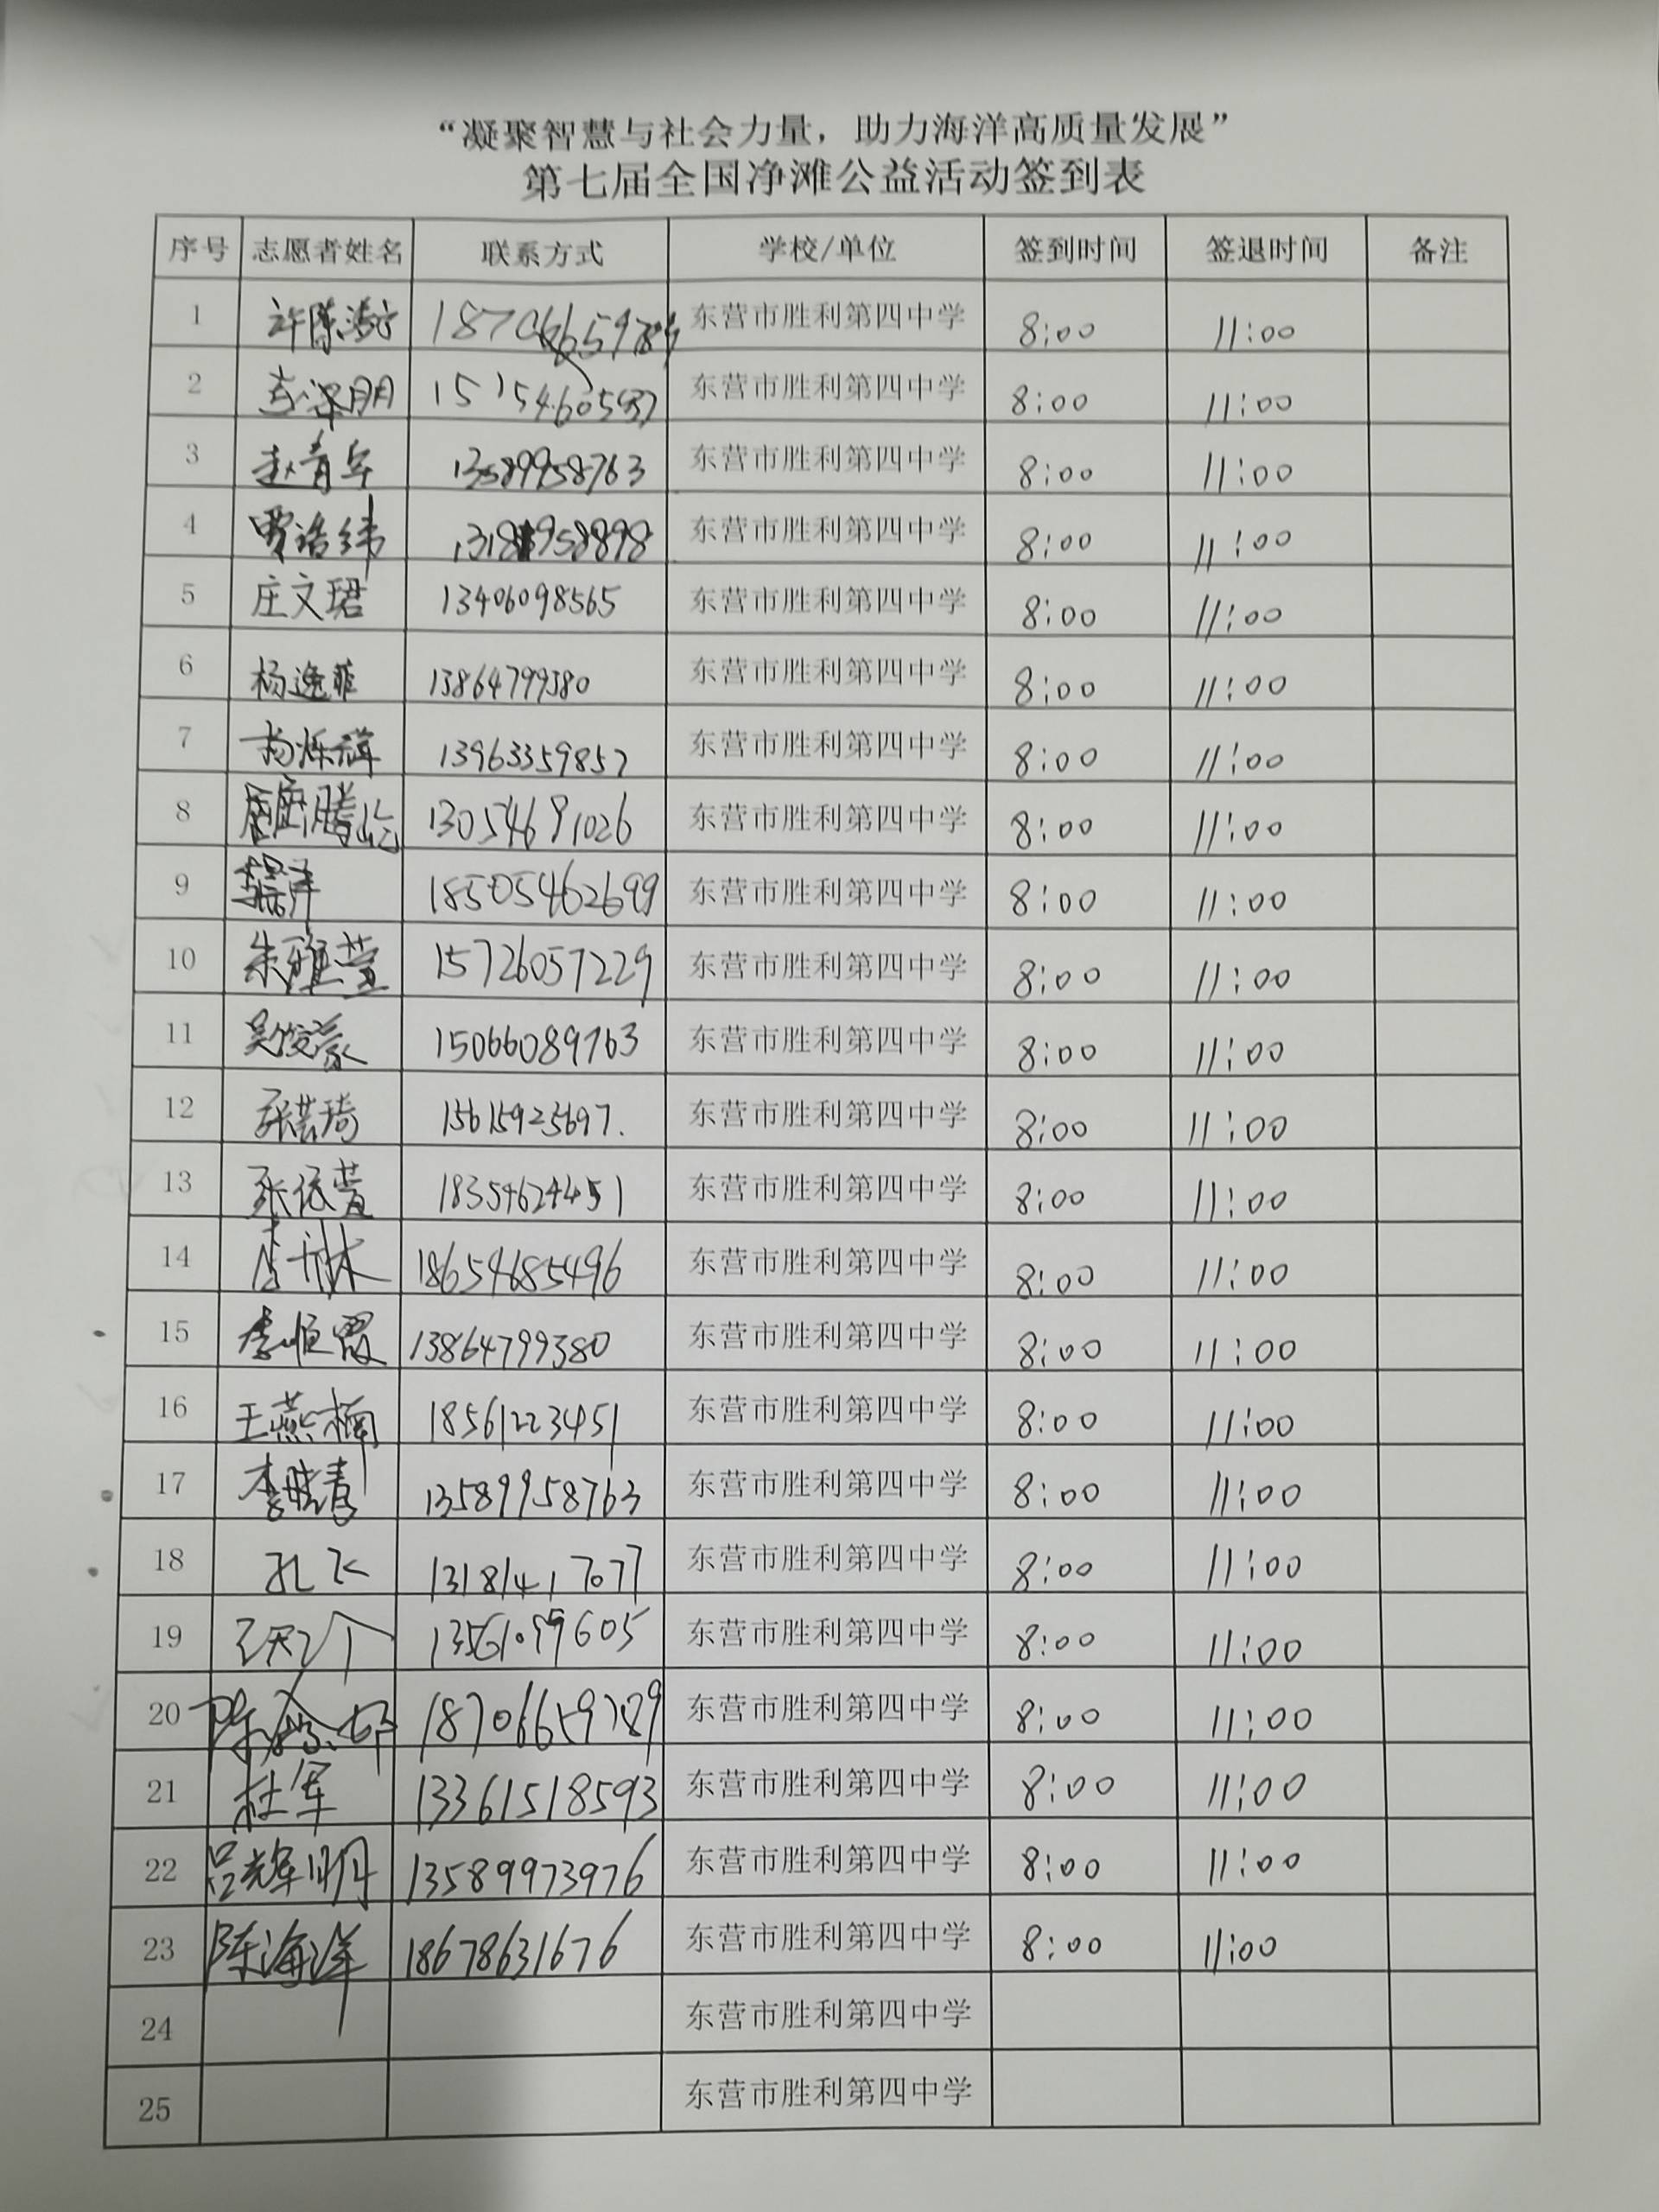 “凝聚智慧与社会力量，助力海洋高质量发展”
第七届全国净滩公益活动签到表
序号 志愿者姓名 联系方式 学校/单位 签到时间 签退时间 备注
1 东营市胜利第四中学 8:00 11:00
2 东营市胜利第四中学 8:00 11:00
3 赵青年 13589958763 东营市胜利第四中学 8:00 11:00
4 贾浩纬 东营市胜利第四中学 8:00 11:00
5 庄文珺 13406098565 东营市胜利第四中学 8:00 11:00
6 杨逸菲 13864799380 东营市胜利第四中学 8:00 11:00
7 13963359857 东营市胜利第四中学 8:00 11:00
8 13054691026 东营市胜利第四中学 8:00 11:00
9 18505462699 东营市胜利第四中学 8:00 11:00
10 朱雅萱 15726057229 东营市胜利第四中学 8:00 11:00
11 15066089763 东营市胜利第四中学 8:00 11:00
12 张芸琦 15615925697. 东营市胜利第四中学 8:00 11:00
13 张依萱 18354624451 东营市胜利第四中学 8:00 11:00
14 18654685496 东营市胜利第四中学 8:00 11:00
15 李恒霞 13864799380 东营市胜利第四中学 8:00 11:00
16 王燕楠 18561223451 东营市胜利第四中学 8:00 11:00
17 李晓青 13589958763 东营市胜利第四中学 8:00 11:00
18 孔飞 13181417077 东营市胜利第四中学 8:00 11:00
19 13561099605 东营市胜利第四中学 8:00 11:00
20 18706659789 东营市胜利第四中学 8:00 11:00
21 杜军 13361518593 东营市胜利第四中学 8:00 11:00
22 吕辉明 13589973976 东营市胜利第四中学 8:00 11:00
23 陈海洋 18678631676 东营市胜利第四中学 8:00 11:00
24 东营市胜利第四中学
25 东营市胜利第四中学